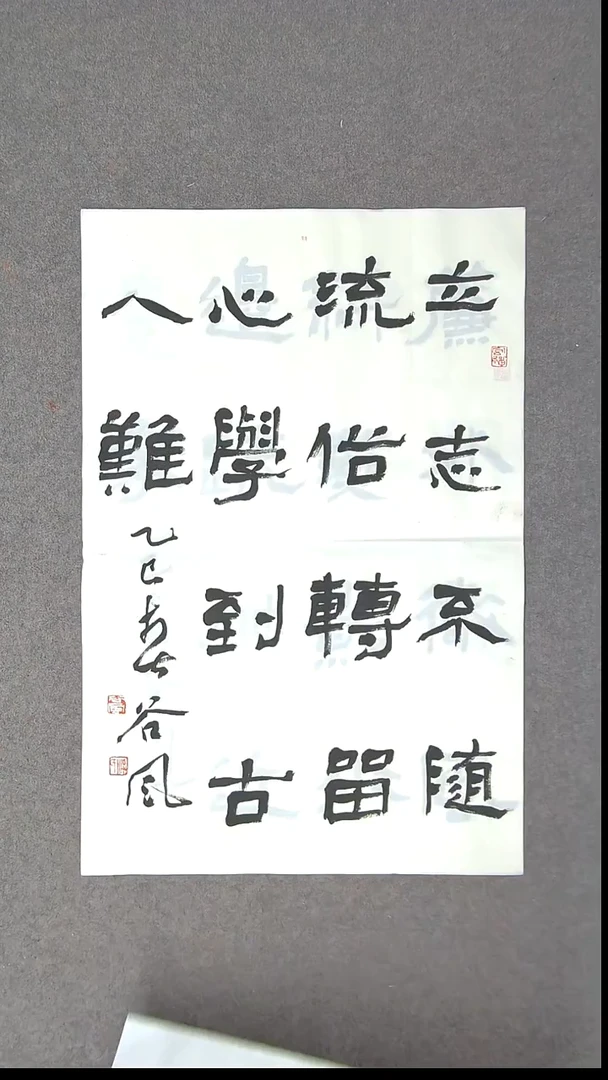 立志不随
流俗轉留
心學到古
人難
乙巳 谷风